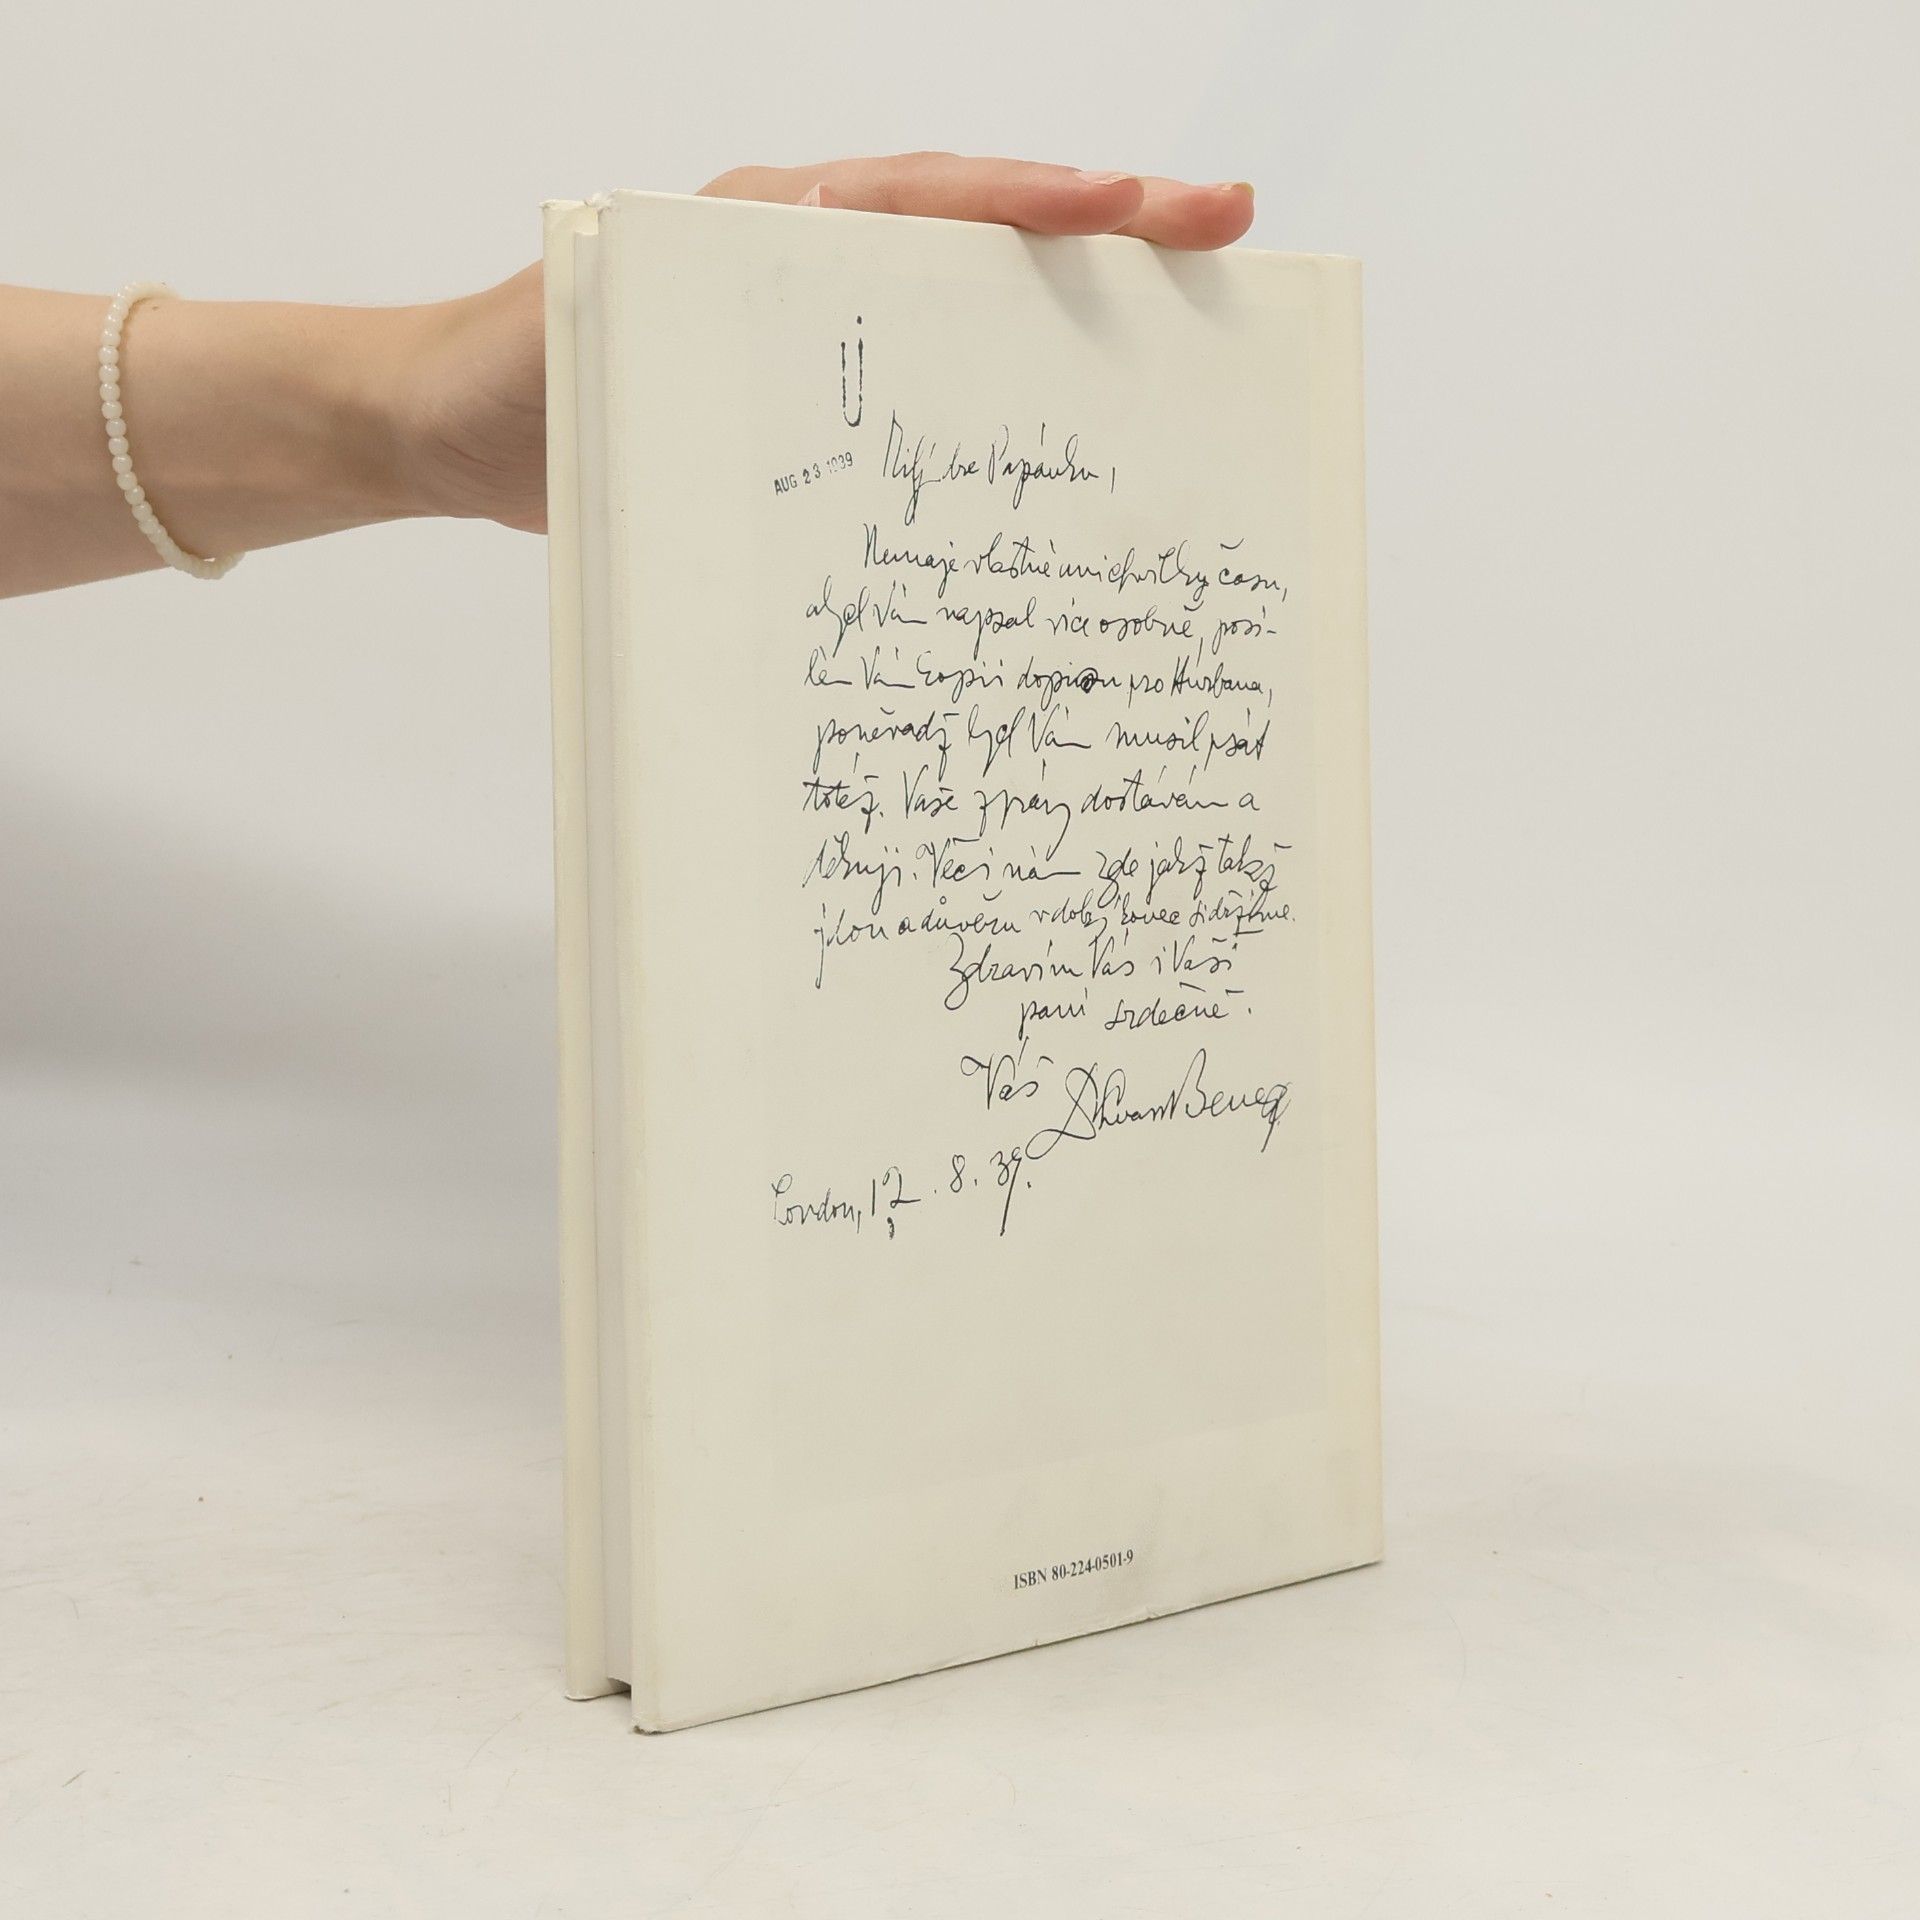 AUG 23 1939
Milý dre Papánku,
Nemaje vlastně ani chvilky času,
abych Vám napsal více osobně, posí-
lám Vám kopii dopisu pro Hurbana,
poněvadž bych Vám musil psát
totéž. Vaše zprávy dostávám a
děkuji. Věci nám zde jakž takž
jdou a důvěru v dobrý konec si držíme.
Zdravím Vás i Vaši
paní srdečně.
Váš Beneš
London, 12. 8. 39.
ISBN 80-224-0501-9